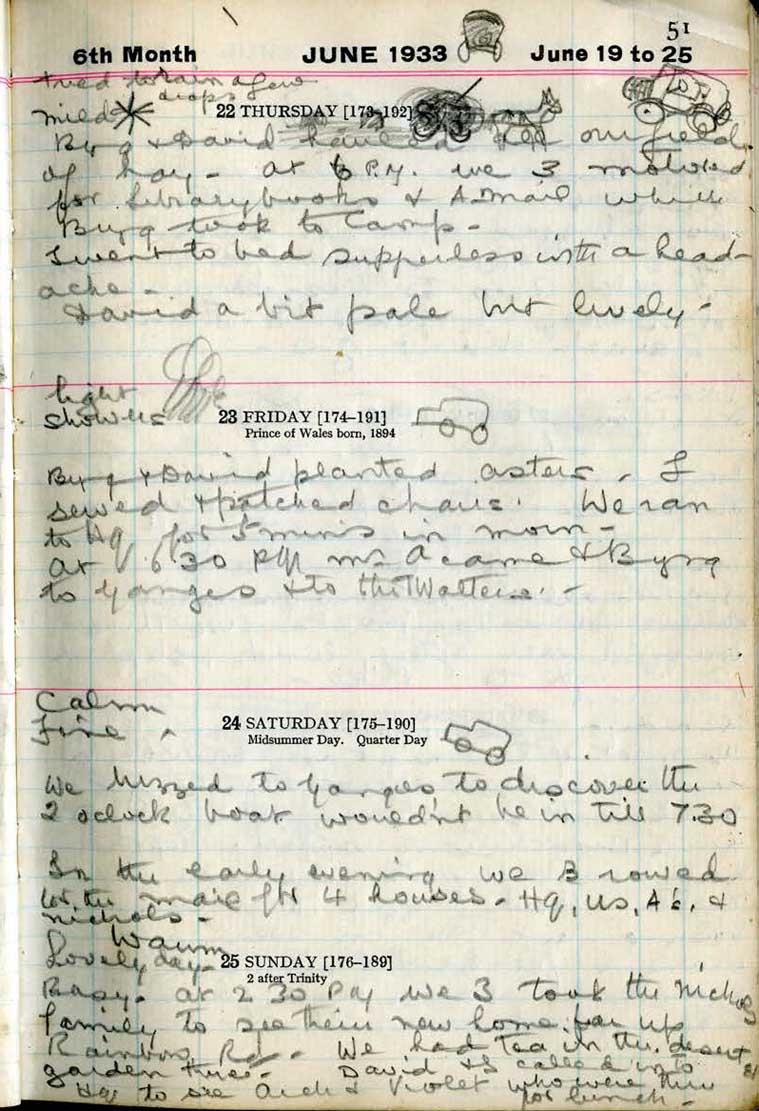 51
6th Month JUNE 1933 June 19 to 25
tried to rain a few
drops
mild
22 THURSDAY [173-192]
Byrg & David hauled our field
of hay - at 6 P.M. we 3 motored
for Library books & A. mail while
Byrg took to Camp -
I went to bed supperless with a head-
ache -
David a bit pale but lively -
light
showers
23 FRIDAY [174-191]
Prince of Wales born, 1894
Byrg & David planted asters. I
sewed & patched chairs. We ran
to Hq for 5 mins in morn -
At 6 30 PM Mr A came & Byrg
to Ganges & to the Walters. -
Calm
Fine.
24 SATURDAY [175-190]
Midsummer Day. Quarter Day
We buzzed to Ganges to discover the
2 oclock boat wouldn't be in till 7.30
In the early evening we 3 rowed
for the mail for 4 houses - Hq, us, A's, &
Nichols -
Warm
Lovely day -
25 SUNDAY [176-189]
2 after Trinity
at 2 30 PM we 3 took the Nichols
family to see their new home far up
Rainbow Rd - We had tea in the desert
garden there - David & I called into
Hq to see Arch & Violet who were there
for lunch -